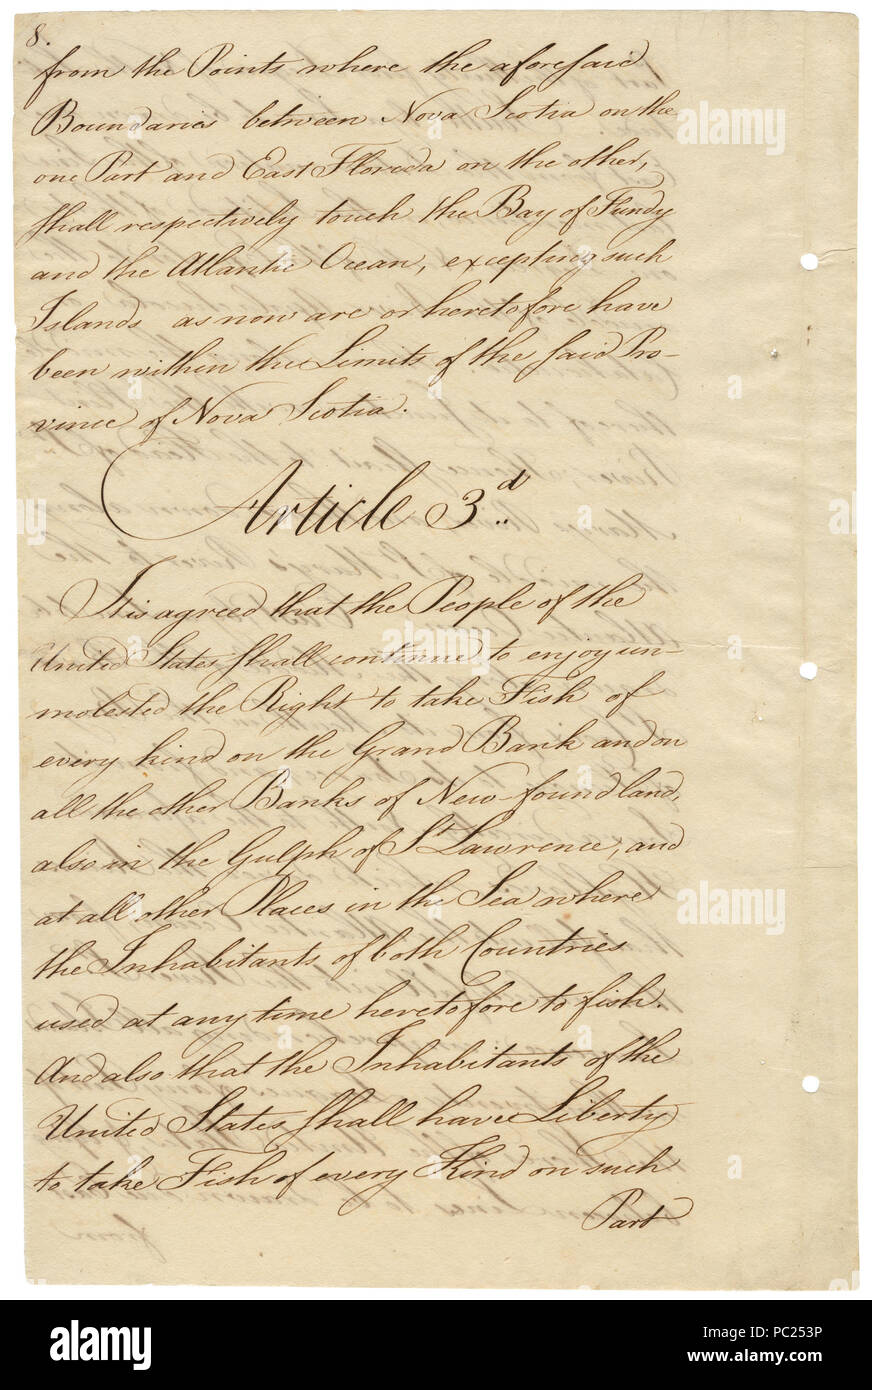 8.
from the Points where the aforesaid
Boundaries between Nova Scotia on the
one Part and East Florida on the other,
shall respectively touch the Bay of Fundy
and the Atlantic Ocean, excepting such
Islands as now are or heretofore have
been within the Limits of the said Pro-
vince of Nova Scotia.
Article 3d.
It is agreed that the People of the
United States shall continue to enjoy un-
molested the Right to take Fish of
every kind on the Grand Bank and on
all the other Banks of New-foundland,
also in the Gulph of St Lawrence, and
at all other Places in the Sea where
the Inhabitants of both Countries
used at any time heretofore to fish.
And also that the Inhabitants of the
United States shall have Liberty
to take Fish of every Kind on such
Part
alamy
alamy
alamy
alamy
alamy
alamy
a
a
a
a
a
alamy
Image ID: PC253P
www.alamy.com